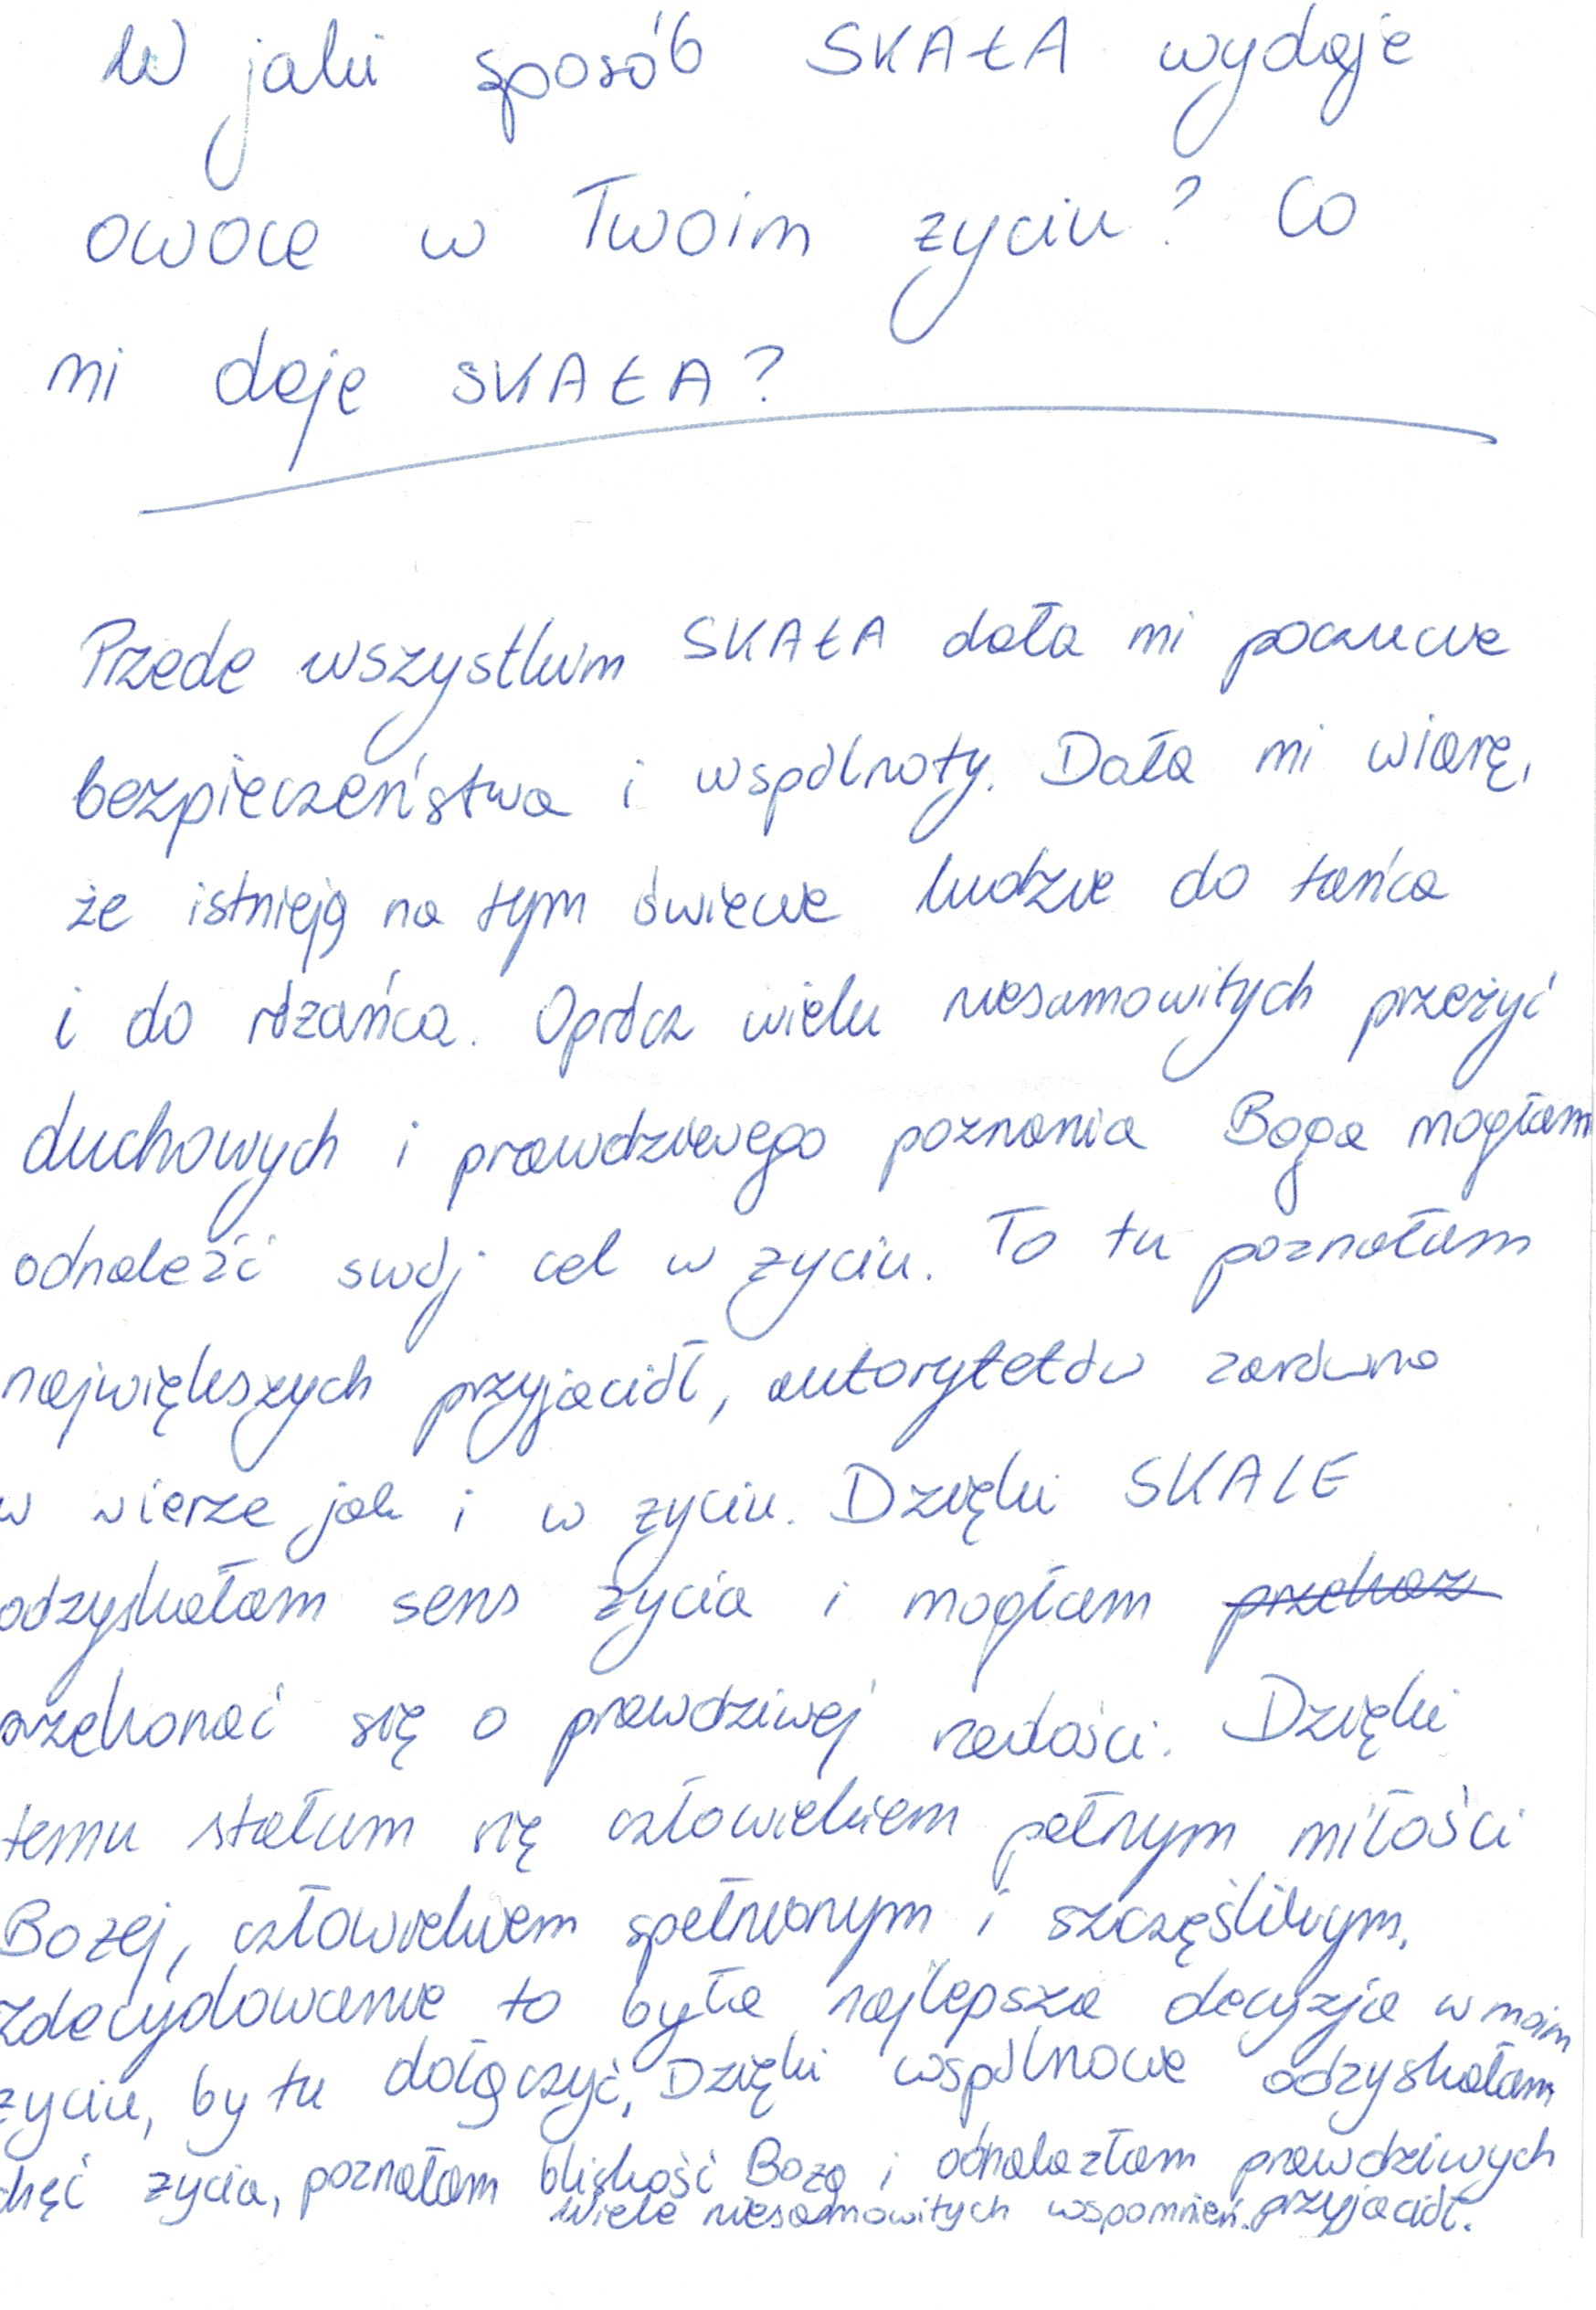 W jaki sposób SKAŁA wydaje
owoce w Twoim życiu? Co
mi daje SKAŁA?
Przede wszystkim SKAŁA dała mi poczucie
bezpieczeństwa i wspólnoty. Dała mi wiarę,
że istnieją na tym świecie ludzie do tańca
i do różańca. Oprócz wielu niesamowitych przeżyć
duchowych i prawdziwego poznania Boga mogłam
odnaleźć swój cel w życiu. To tu poznałam
największych przyjaciół, autorytetów zarówno
w wierze jak i w życiu. Dzięki SKALE
odzyskałam sens życia i mogłam przekaz
przekonać się o prawdziwej radości. Dzięki
temu stałam się człowiekiem pełnym miłości
Bożej, człowiekiem spełnionym i szczęśliwym.
Zdecydowanie to była najlepsza decyzja w moim
życiu, by tu dołączyć. Dzięki wspólnocie odzyskałam
chęć życia, poznałam bliskość Bożą i odnalazłam prawdziwych
przyjaciół.
Wiele niesamowitych wspomnień.